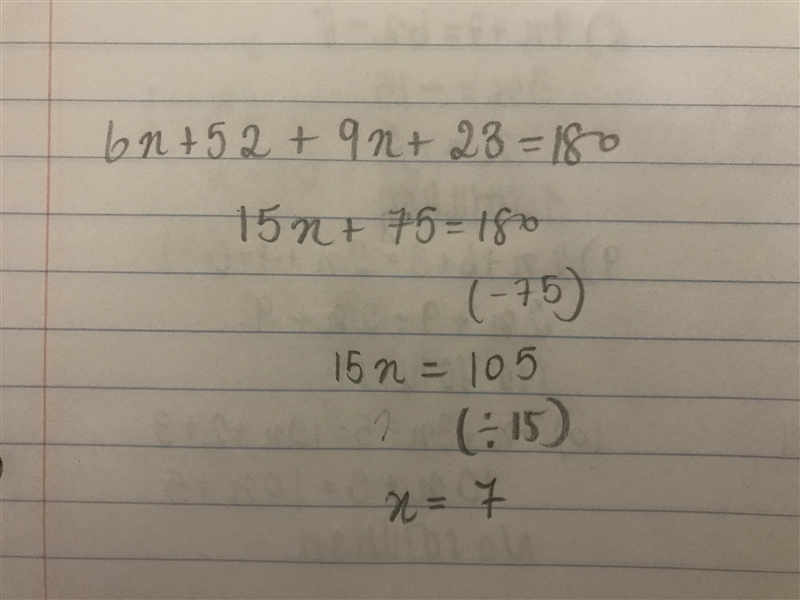 6x+52 + 9x+ 23 = 180
15x + 75 = 180
(-75)
15x = 105
(÷15)
x = 7